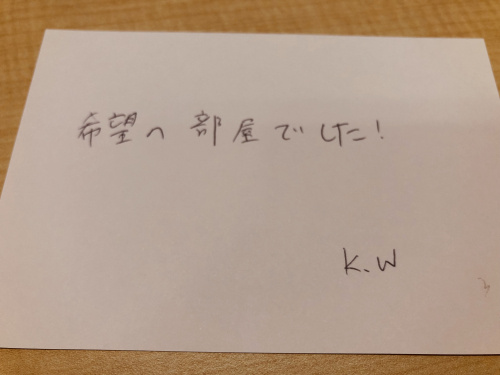 希望へ 部屋でした!
K.W